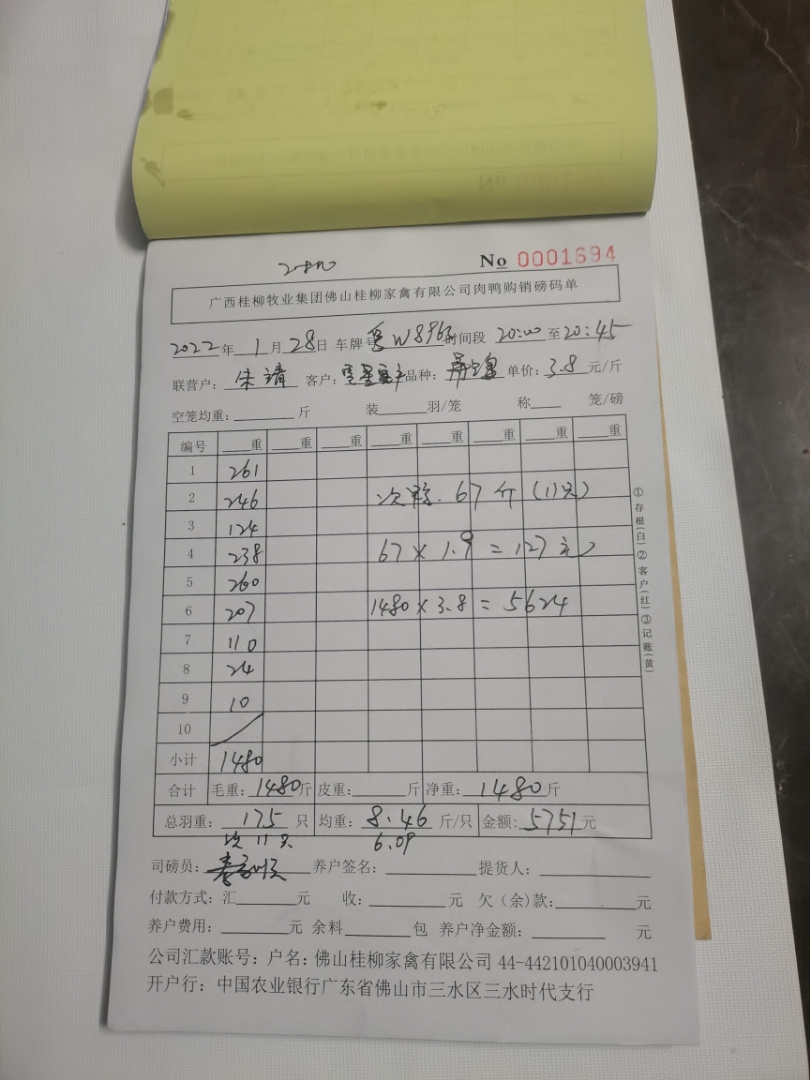 No 0001694
广西桂柳牧业集团佛山桂柳家禽有限公司肉鸭购销磅码单
2022年 1月28日 车牌号 W8963 时间段 20:00至20:45
联营户：朱靖 客户： 品种： 单价：3.8元/斤
空笼均重：斤 装 羽/笼 称 笼/磅
编号 重 重 重 重 重 重 重 重
1 261
2 246 次鸭.67斤(11只)
3 124
4 238 67×1.9=127元
5 260
6 207 1480×3.8=5624
7 110
8 24
9 10
10
小计 1480
合计 毛重：1480斤 皮重：斤 净重：1480斤
总羽重：175只 均重：8.46斤/只 金额：5751元
次11只 6.09
司磅员： 养户签名： 提货人：
付款方式：汇 元 收： 元 欠（余）款： 元
养户费用： 元 余料 包 养户净金额： 元
公司汇款账号：户名：佛山桂柳家禽有限公司 44-442101040003941
开户行：中国农业银行广东省佛山市三水区三水时代支行
①存根(白)②客户(红)③记账(黄)